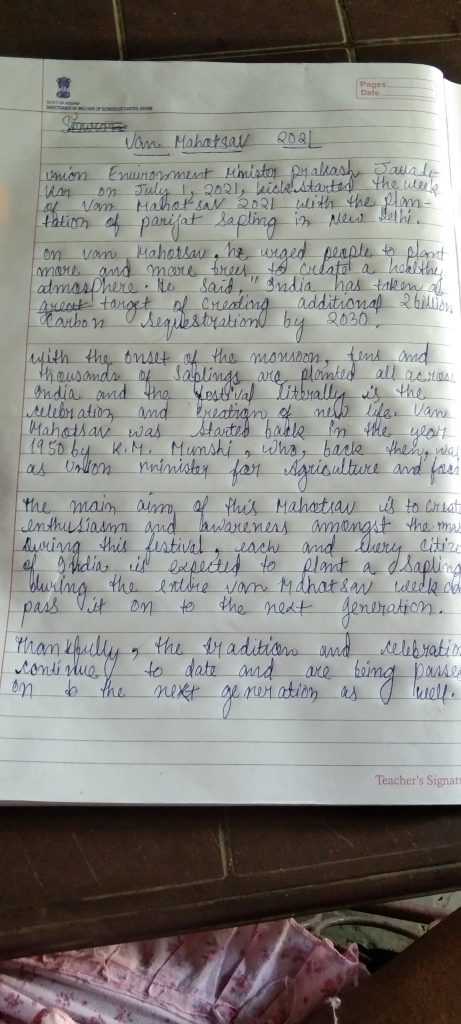 GOVT. OF ASSAM
DIRECTORATE OF WELFARE OF SCHEDULED CASTES, ASSAM
Pages
Date
Van Mahotsav 2021
Union Environment Minister Prakash Javade-
kar on July 1, 2021, kickstarted the week
of Van Mahotsav 2021 with the Plan-
tation of parijat Sapling in New Delhi.
On Van Mahotsav, he urged people to plant
more and more trees to create a healthy
atmosphere. He said, "India has taken a
great target of Creating additional 2 billion
Carbon Sequestration by 2030.
With the onset of the monsoon, tens and
thousands of Saplings are planted all across
India and the festival literally is the
celebration and creation of new life. Van
Mahotsav was started back in the year
1950 by K.M. Munshi, who, back then, was
as Union minister for Agriculture and
The main aim of this Mahotsav is to create
enthusiasm and awareness amongst the
During this festival, each and every citize
of India is expected to plant a Sapling
during the entire Van Mahotsav week
pass it on to the next generation.
Thankfully, the tradition and celebration
continue to date and are being passed
on to the next generation as well.
Teacher's Signatu